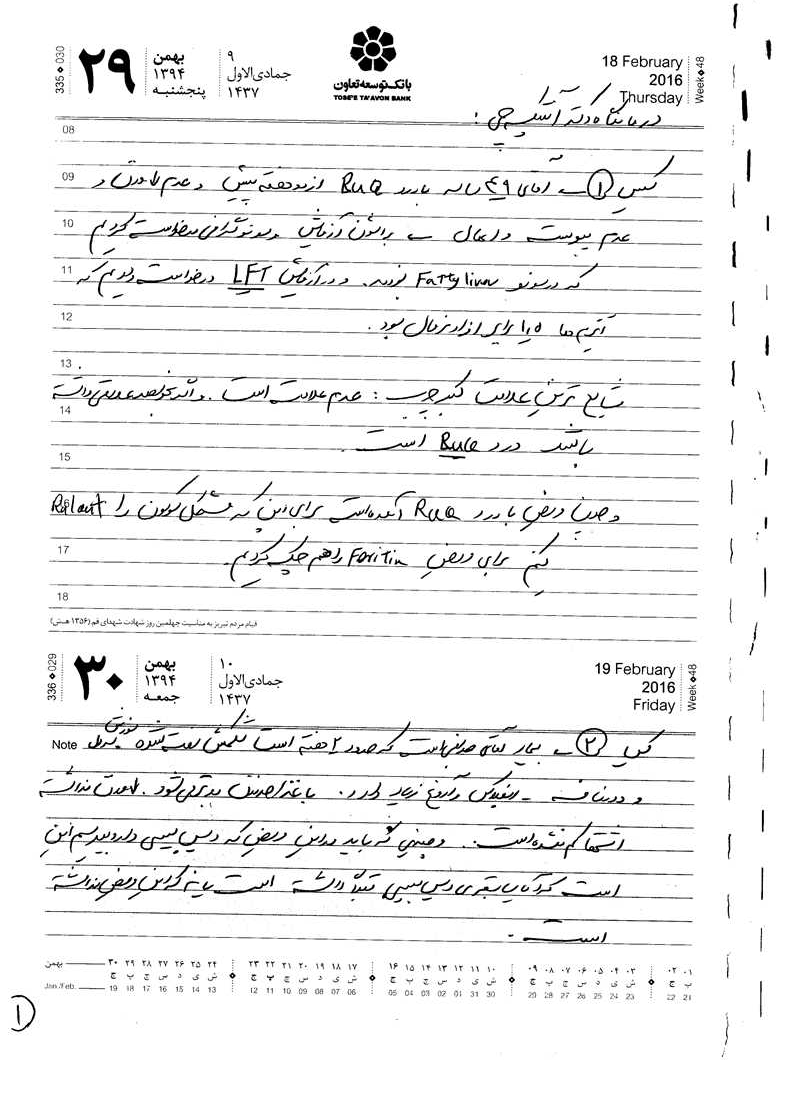 335 ◆ 030
۲۹
بهمن
۱۳۹۴
پنجشنبه
۹
جمادی‌الاول
۱۴۳۷
بانک توسعه تعاون
TOSE'E TA'AVON BANK
18 February
2016
Thursday
Week◆48
درمانگاه دکتر :
08
09 کیس ① ـ آقای ۴۹ ساله با درد RUQ از دو هفته پیش و عدم و
10 عدم یبوست و اسهال ـ برایشون آزمایش و سونوگرافی درخواست کردیم
11 که در سونو Fatty liver بودند. و در آزمایش LFT درخواست دادیم که
12 آنزیم ها ۱٫۵ برابر نرمال بود.
13 شایع ترین علامت کبد چرب : عدم علامت است. و اگر بخواهد علامتی داشته
14 باشد درد RUQ است.
15
16 و چون مریض با درد RUQ آمده است برای این که مشکل را
17 کنیم برای مریض Feritin را هم چک کردیم.
18
قیام مردم تبریز به مناسبت چهلمین روز شهادت شهدای قم (۱۳۵۶ ه‍.ش)
336 ◆ 029
۳۰
بهمن
۱۳۹۴
جمعه
۱۰
جمادی‌الاول
۱۴۳۷
19 February
2016
Friday
Week◆48
Note کیس ② ـ بیمار آقای است که حدود ۲ هفته است شکمش سفت شده
و درد ناف ـ رفلاکس و آروغ زیاد دارد. با غذا خوردن بدتر می شود.
اشتها کم نشده است. و چیزی که باید در این مریض که دیس پپسی دارد بپرسیم این
است که آیا سابقه ی دیس پپسی قبلاً داشته است یا نه که این مریض نداشته
است.
بهمن ۳۰ ۲۹ ۲۸ ۲۷ ۲۶ ۲۵ ۲۴ ۲۳ ۲۲ ۲۱ ۲۰ ۱۹ ۱۸ ۱۷ ۱۶ ۱۵ ۱۴ ۱۳ ۱۲ ۱۱ ۱۰ ۰۹ ۰۸ ۰۷ ۰۶ ۰۵ ۰۴ ۰۳ ۰۲ ۰۱
ج پ چ س د ی ش ج پ چ س د ی ش ج پ چ س د ی ش ج پ چ س د ی ش ج پ
Jan./Feb. 19 18 17 16 15 14 13 12 11 10 09 08 07 06 05 04 03 02 01 31 30 29 28 27 26 25 24 23 22 21
①